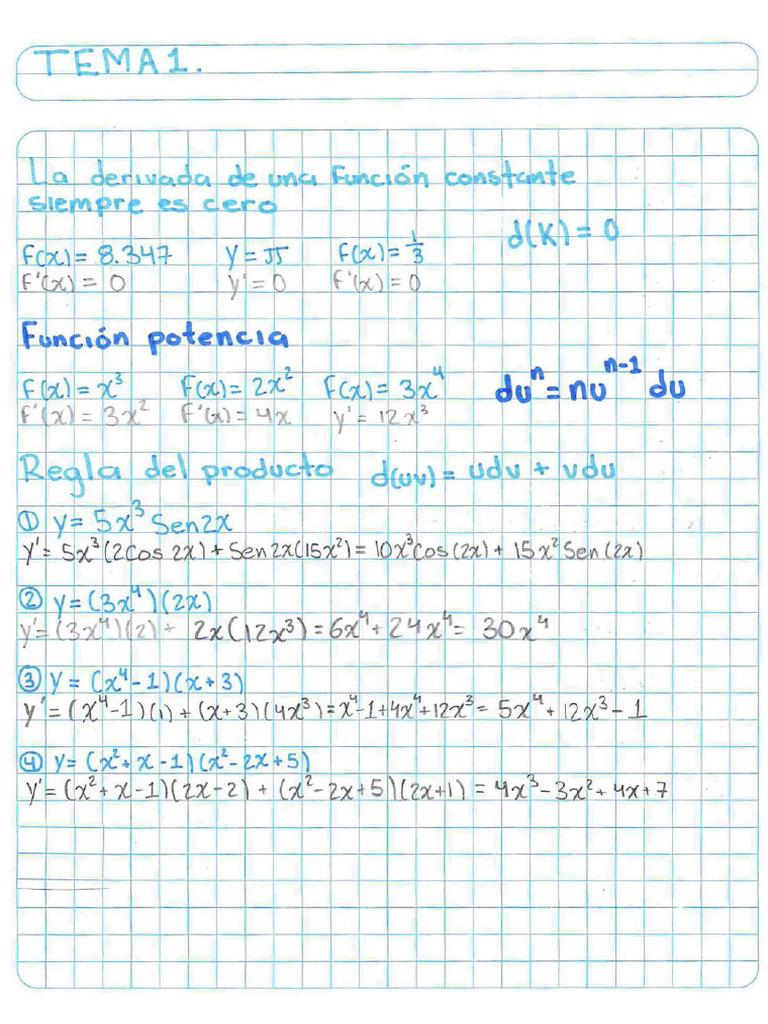 TEMA 1.
La derivada de una Función constante
siempre es cero
d(K) = 0
F(x) = 8.347 y = π f(x) = 1/3
F'(x) = 0 y' = 0 F'(x) = 0
Función potencia
F(x) = x³ F(x) = 2x² F(x) = 3x⁴ duⁿ = nuⁿ⁻¹ du
F'(x) = 3x² F'(x) = 4x y' = 12x³
Regla del producto d(uv) = udv + vdu
① y = 5x³ Sen2x
y' = 5x³(2Cos 2x) + Sen2x(15x²) = 10x³Cos(2x) + 15x²Sen(2x)
② y = (3x⁴)(2x)
y' = (3x⁴)(2) + 2x(12x³) = 6x⁴ + 24x⁴ = 30x⁴
③ y = (x⁴-1)(x+3)
y' = (x⁴-1)(1) + (x+3)(4x³) = x⁴-1+4x⁴+12x³ = 5x⁴+12x³-1
④ y = (x²+x-1)(x²-2x+5)
y' = (x²+x-1)(2x-2) + (x²-2x+5)(2x+1) = 4x³-3x²+4x+7